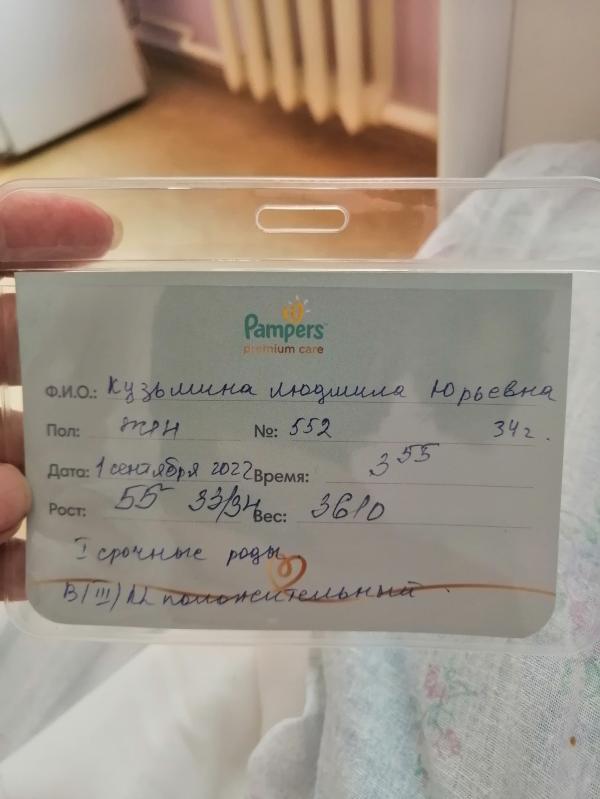 Pampers
premium care
Ф.И.О.: Кузьмина Людмила Юрьевна
Пол: жен №: 552 34 г.
Дата: 1 сентября 2022 Время: 3 55
Рост: 55 33/34 Вес: 3610
I срочные роды
В(III) положительный